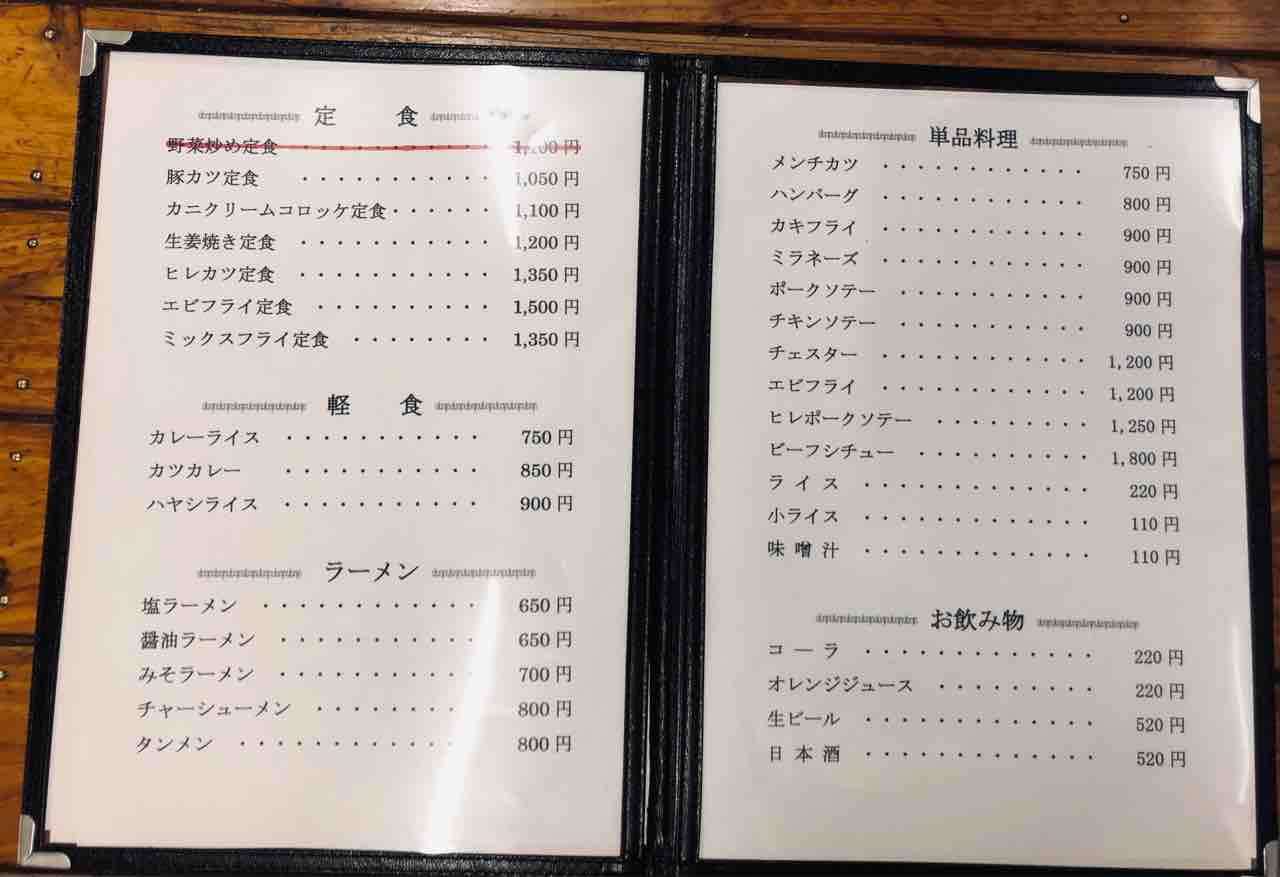 定 食
野菜炒め定食 ・・・・・・・・・・
豚カツ定食 ・・・・・・・・・・・ 1,050 円
カニクリームコロッケ定食・・・・・・ 1,100 円
生姜焼き定食 ・・・・・・・・・・・ 1,200 円
ヒレカツ定食 ・・・・・・・・・・・ 1,350 円
エビフライ定食 ・・・・・・・・・・ 1,500 円
ミックスフライ定食 ・・・・・・・・ 1,350 円
軽 食
カレーライス ・・・・・・・・・・・ 750 円
カツカレー ・・・・・・・・・・・ 850 円
ハヤシライス ・・・・・・・・・・・ 900 円
ラーメン
塩ラーメン ・・・・・・・・・・・・ 650 円
醤油ラーメン ・・・・・・・・・・・ 650 円
みそラーメン ・・・・・・・・・・・ 700 円
チャーシューメン ・・・・・・・・・ 800 円
タンメン ・・・・・・・・・・・・・ 800 円
単品料理
メンチカツ ・・・・・・・・・・・・ 750 円
ハンバーグ ・・・・・・・・・・・・ 800 円
カキフライ ・・・・・・・・・・・・ 900 円
ミラネーズ ・・・・・・・・・・・・ 900 円
ポークソテー ・・・・・・・・・・・ 900 円
チキンソテー ・・・・・・・・・・・ 900 円
チェスター ・・・・・・・・・・・・ 1,200 円
エビフライ ・・・・・・・・・・・・ 1,200 円
ヒレポークソテー ・・・・・・・・・ 1,250 円
ビーフシチュー ・・・・・・・・・・ 1,800 円
ラ イ ス ・・・・・・・・・・・・・ 220 円
小ライス ・・・・・・・・・・・・・ 110 円
味 噌 汁 ・・・・・・・・・・・・・ 110 円
お飲み物
コ ー ラ ・・・・・・・・・・・・・ 220 円
オレンジジュース ・・・・・・・・・ 220 円
生ビール ・・・・・・・・・・・・・ 520 円
日 本 酒 ・・・・・・・・・・・・・ 520 円